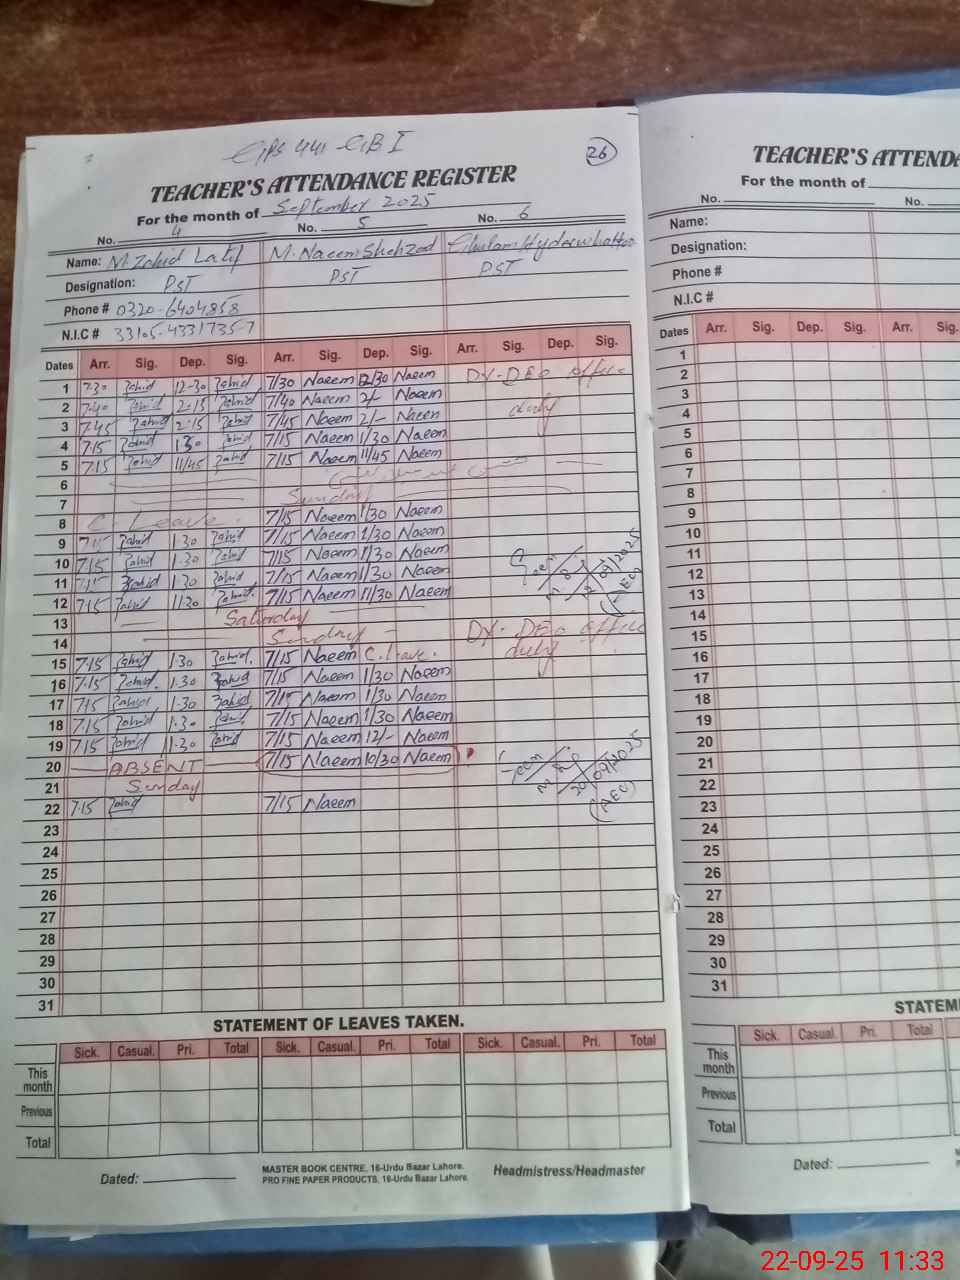 GPS 441 GB I
26
TEACHER'S ATTENDANCE REGISTER
For the month of September 2025
No. 4 No. 5 No. 6
Name: M. Zahid Latif M. Naeem Shehzad Ghulam Hyder
Designation: PST PST PST
Phone # 0320-6404858
N.I.C # 33105-4331735-7
Dates Arr. Sig. Dep. Sig. Arr. Sig. Dep. Sig. Arr. Sig. Dep. Sig.
1 7-30 Zahid 12-30 Zahid 7/30 Naeem 12/30 Naeem Dy-DEO office
2 7-40 Zahid 2-15 Zahid 7/40 Naeem 2/- Naeem duty
3 7-45 Zahid 2-15 Zahid 7/45 Naeem 2/- Naeem
4 7-15 Zahid 1-30 Zahid 7/15 Naeem 1/30 Naeem
5 7-15 Zahid 11/45 Zahid 7/15 Naeem 11/45 Naeem
6
7 Sunday
8 C. Leave. 7/15 Naeem 1/30 Naeem
9 7-15 Zahid 1-30 Zahid 7/15 Naeem 1/30 Naeem
10 7-15 Zahid 1-30 Zahid 7/15 Naeem 1/30 Naeem
11 7-15 Zahid 1-30 Zahid 7/15 Naeem 1/30 Naeem
12 7-15 Zahid 11-30 Zahid 7/15 Naeem 11/30 Naeem
(AEO)
13 Saturday
14 Sunday Dy-DEO office
15 7-15 Zahid 1-30 Zahid 7/15 Naeem C. leave. duty
16 7-15 Zahid 1-30 Zahid 7/15 Naeem 1/30 Naeem
17 7-15 Zahid 1-30 Zahid 7/15 Naeem 1/30 Naeem
18 7-15 Zahid 1-30 Zahid 7/15 Naeem 1/30 Naeem
19 7-15 Zahid 11-30 Zahid 7/15 Naeem 12/- Naeem
20 ABSENT 7/15 Naeem 10/30 Naeem
20/09/2025
(AEO)
21 Sunday
22 7-15 Zahid 7/15 Naeem
23
24
25
26
27
28
29
30
31
STATEMENT OF LEAVES TAKEN.
Sick. Casual. Pri. Total Sick. Casual. Pri. Total Sick. Casual. Pri. Total
This month
Previous
Total
Dated:
MASTER BOOK CENTRE, 16-Urdu Bazar Lahore.
PRO FINE PAPER PRODUCTS, 16-Urdu Bazar Lahore.
Headmistress/Headmaster
TEACHER'S ATTENDA
For the month of
No. No.
Name:
Designation:
Phone #
N.I.C #
Dates Arr. Sig. Dep. Sig. Arr. Sig.
1
2
3
4
5
6
7
8
9
10
11
12
13
14
15
16
17
18
19
20
21
22
23
24
25
26
27
28
29
30
31
STATEM
Sick. Casual. Pri. Total
This month
Previous
Total
Dated:
22-09-25 11:33